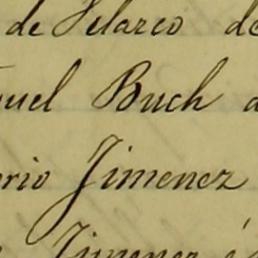 de Velarco de
uel Buch a
erio Jimenez
Jimenez é